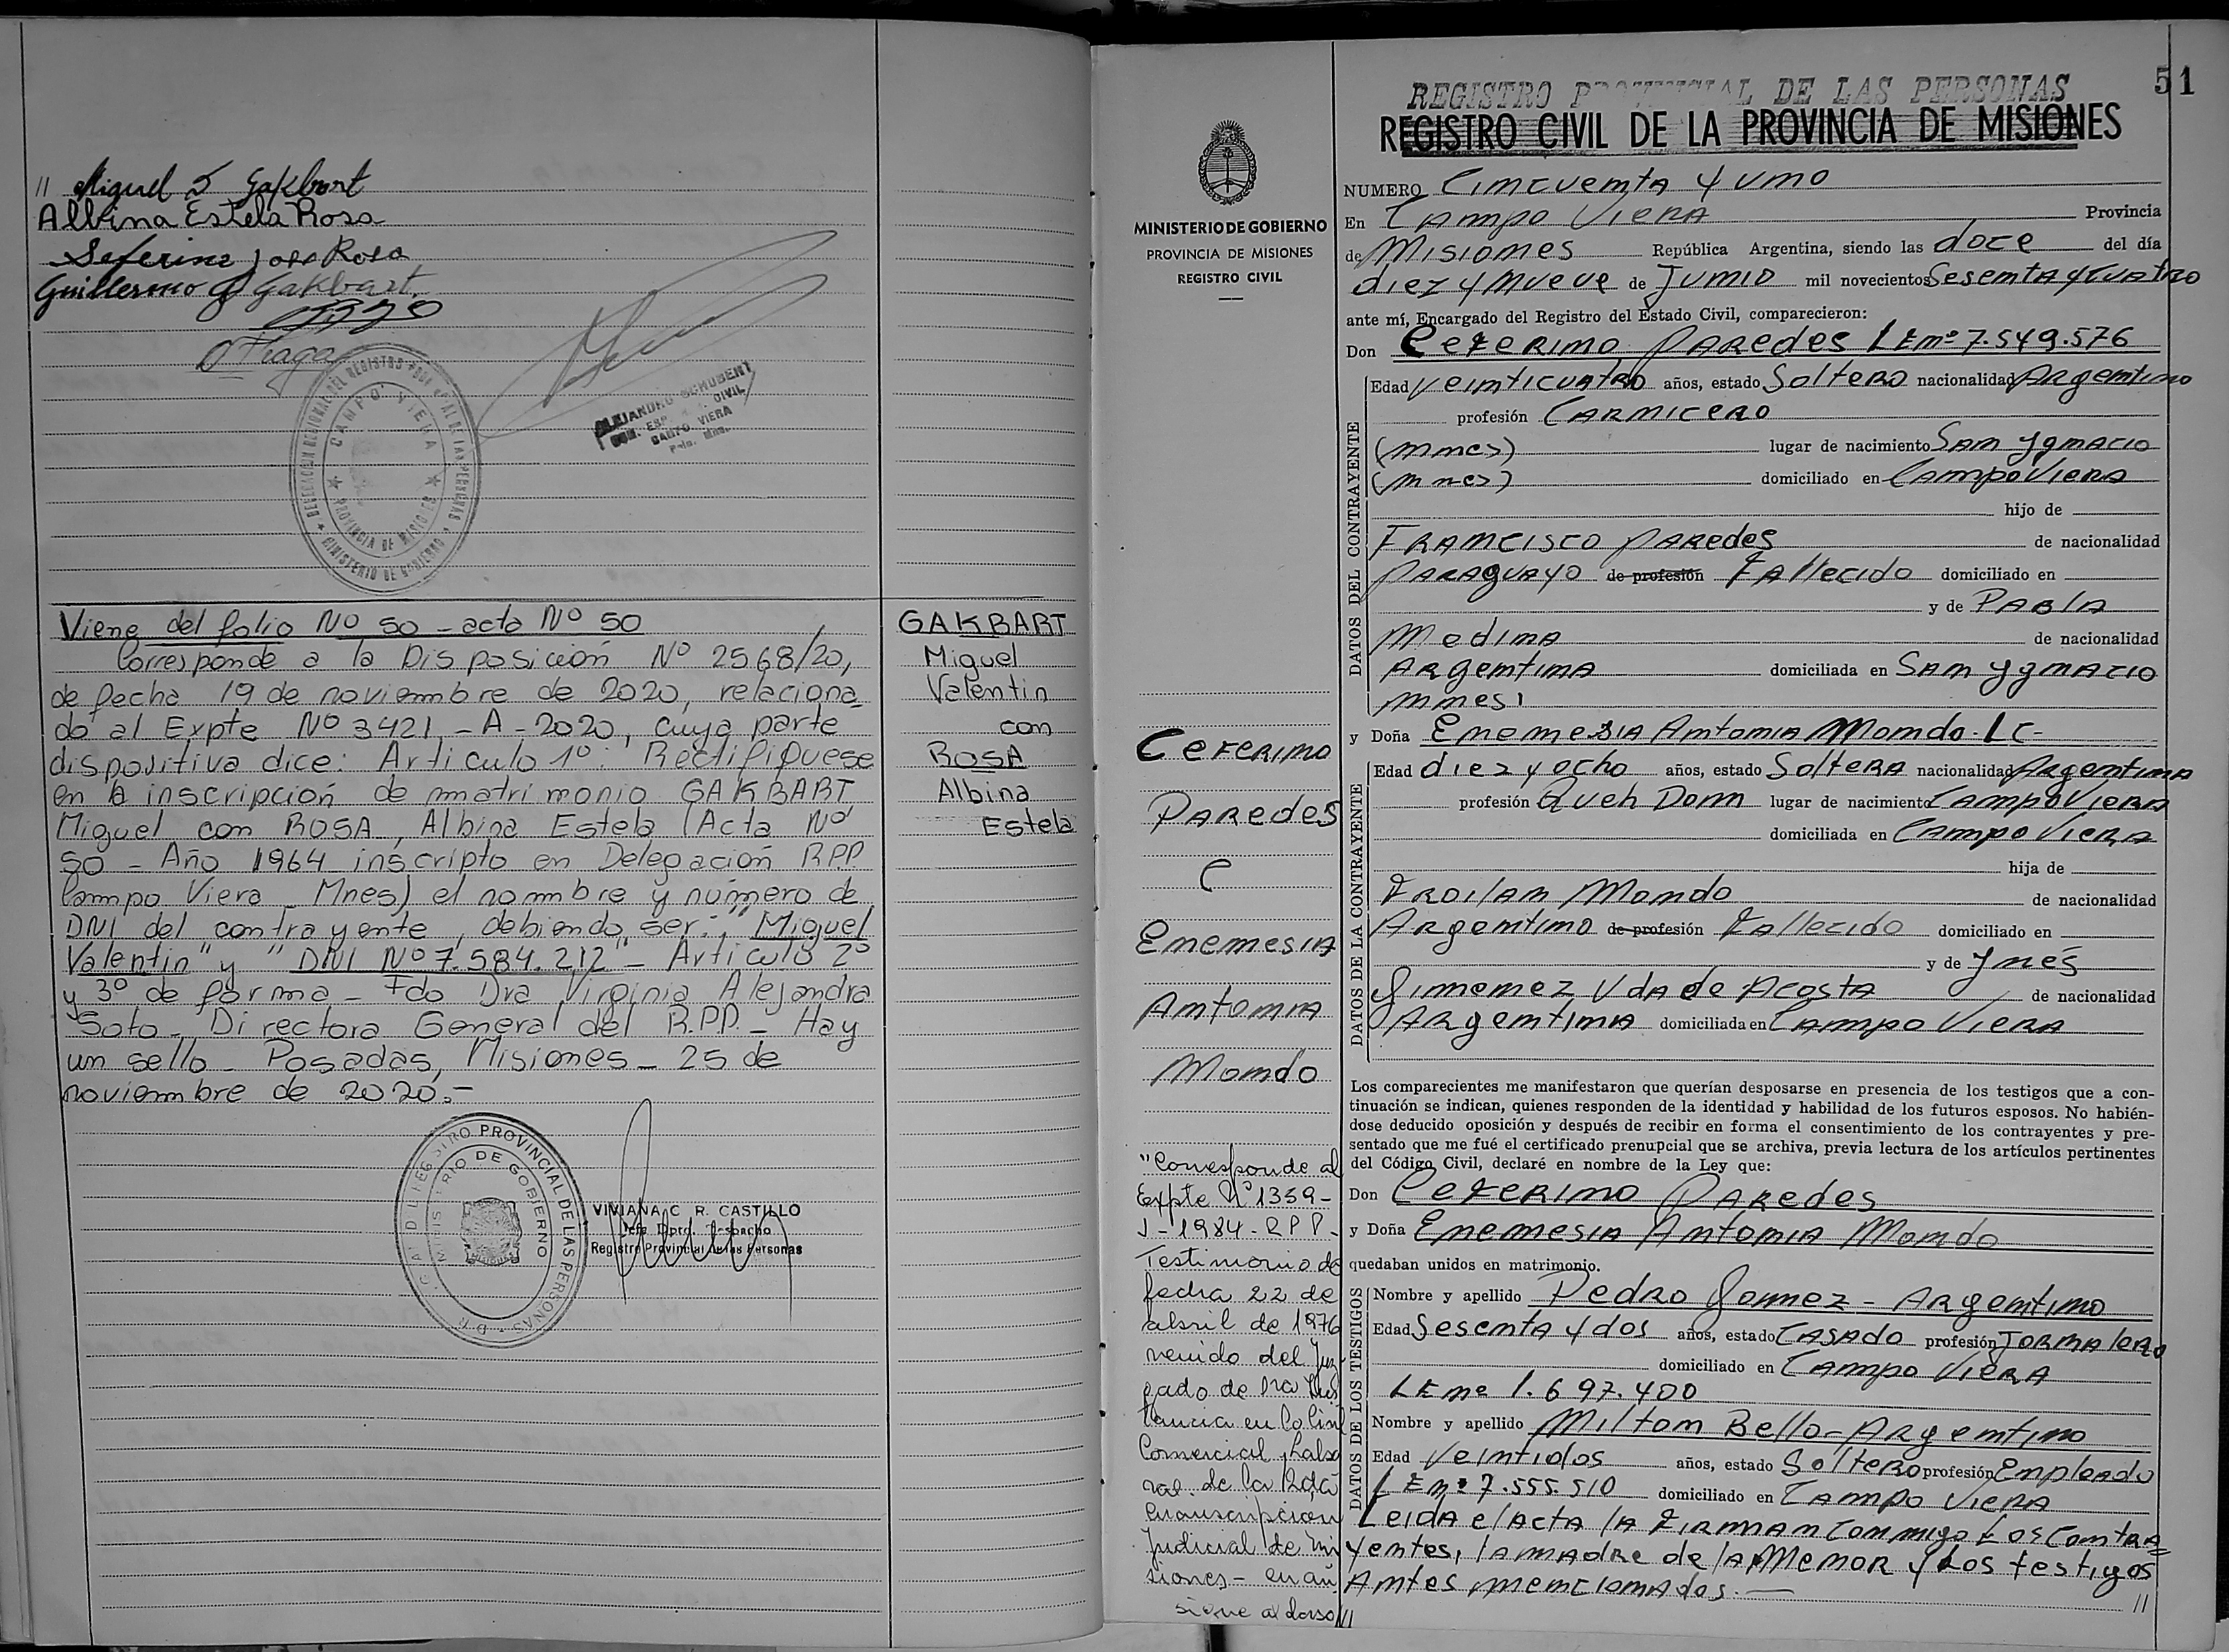 // Miguel V Gakbart
Albina Estela Rosa
Seferino Jose Rosa
Guillermo G Gakbart.
DELEGACION REGIONAL DEL REGISTRO PROVINCIAL DE LAS PERSONAS
CAMPO VIERA
PROVINCIA DE MISIONES
MINISTERIO DE GOBIERNO
ALEJANDRO SCHUBERT
CIVIL
CAMPO VIERA
Viene del folio Nº 50 - acta Nº 50
Corresponde a la Disposición Nº 2568/20,
de fecha 19 de noviembre de 2020, relaciona_
do al Expte Nº 3421 - A - 2020, cuya parte
dispositiva dice: Articulo 1º: Rectifiquese
en la inscripción de matrimonio GAKBART
Miguel con ROSA, Albina Estela (Acta Nº
50 - Año 1964 inscripto en Delegación R.P.P.
Campo Viera - Mnes) el nombre y número de
DNI del contrayente, debiendo ser: "Miguel
Valentin" y "DNI Nº 7.584.212" - Articulo 2º
y 3º de forma - Fdo Dra Virginia Alejandra
Soto - Directora General del R.P.P. - Hay
un sello - Posadas, Misiones - 25 de
noviembre de 2020.-
GAKBART
Miguel
Valentin
con
ROSA
Albina
Estela
REGISTRO PROVINCIAL DE LAS PERSONAS
MINISTERIO DE GOBIERNO
VIVIANA C. R. CASTILLO
Jefa Dpto. Despacho
Registro Provincial de las Personas
51
REGISTRO PROVINCIAL DE LAS PERSONAS
REGISTRO CIVIL DE LA PROVINCIA DE MISIONES
MINISTERIO DE GOBIERNO
PROVINCIA DE MISIONES
REGISTRO CIVIL
NUMERO Cincuenta y uno
En Campo Viera Provincia
de Misiones República Argentina, siendo las doce del día
diez y nueve de Junio mil novecientos Sesenta y cuatro
ante mí, Encargado del Registro del Estado Civil, comparecieron:
Don Ceferino Paredes LE nº 7.549.576
DATOS DEL CONTRAYENTE
Edad Veinticuatro años, estado Soltero nacionalidad Argentino
profesión Carnicero
(mnes) lugar de nacimiento San Ygnacio
(mnes) domiciliado en Campo Viera
hijo de
Francisco Paredes de nacionalidad
Paraguayo de profesión Fallecido domiciliado en
y de Pabla
Medina de nacionalidad
Argentina domiciliada en San Ygnacio
mnes)
y Doña Enemesia Antonia Mondo - LC -
DATOS DE LA CONTRAYENTE
Edad diez y ocho años, estado Soltera nacionalidad Argentina
profesión Queh Dom lugar de nacimiento Campo Viera
domiciliada en Campo Viera
hija de
Froilan Mondo de nacionalidad
Argentino de profesión Fallecido domiciliado en
y de Ynés
Gimenez Vda de Acosta de nacionalidad
Argentina domiciliada en Campo Viera
Los comparecientes me manifestaron que querían desposarse en presencia de los testigos que a con-
tinuación se indican, quienes responden de la identidad y habilidad de los futuros esposos. No habién-
dose deducido oposición y después de recibir en forma el consentimiento de los contrayentes y pre-
sentado que me fué el certificado prenupcial que se archiva, previa lectura de los artículos pertinentes
del Código Civil, declaré en nombre de la Ley que:
Don Ceferino Paredes
y Doña Enemesia Antonia Mondo
quedaban unidos en matrimonio.
DATOS DE LOS TESTIGOS
Nombre y apellido Pedro Gomez - Argentino
Edad Sesenta y dos años, estado Casado profesión Jornalero
domiciliado en Campo Viera
LE nº 1.697.400
Nombre y apellido Milton Bello - Argentino
Edad Veintidos años, estado Soltero profesión Empleado
LE nº 7.555.510 domiciliado en Campo Viera
Leida el acta la firman conmigo los contra=
yentes, la madre de la menor y los testigos
antes mencionados. — //
Ceferino
Paredes
e
Enemesia
Antonia
Mondo
"Corresponde al
Expte Nº 1359-
J-1984-RPP-
Testimonio de
fecha 22 de
abril de 1976
venido del Juz
gado de 1ra Ins
tancia en lo Civil
Comercial, Labo
ral de la Rda
Circunscripcion
Judicial de Mi
siones - en au
sigue al dorso //